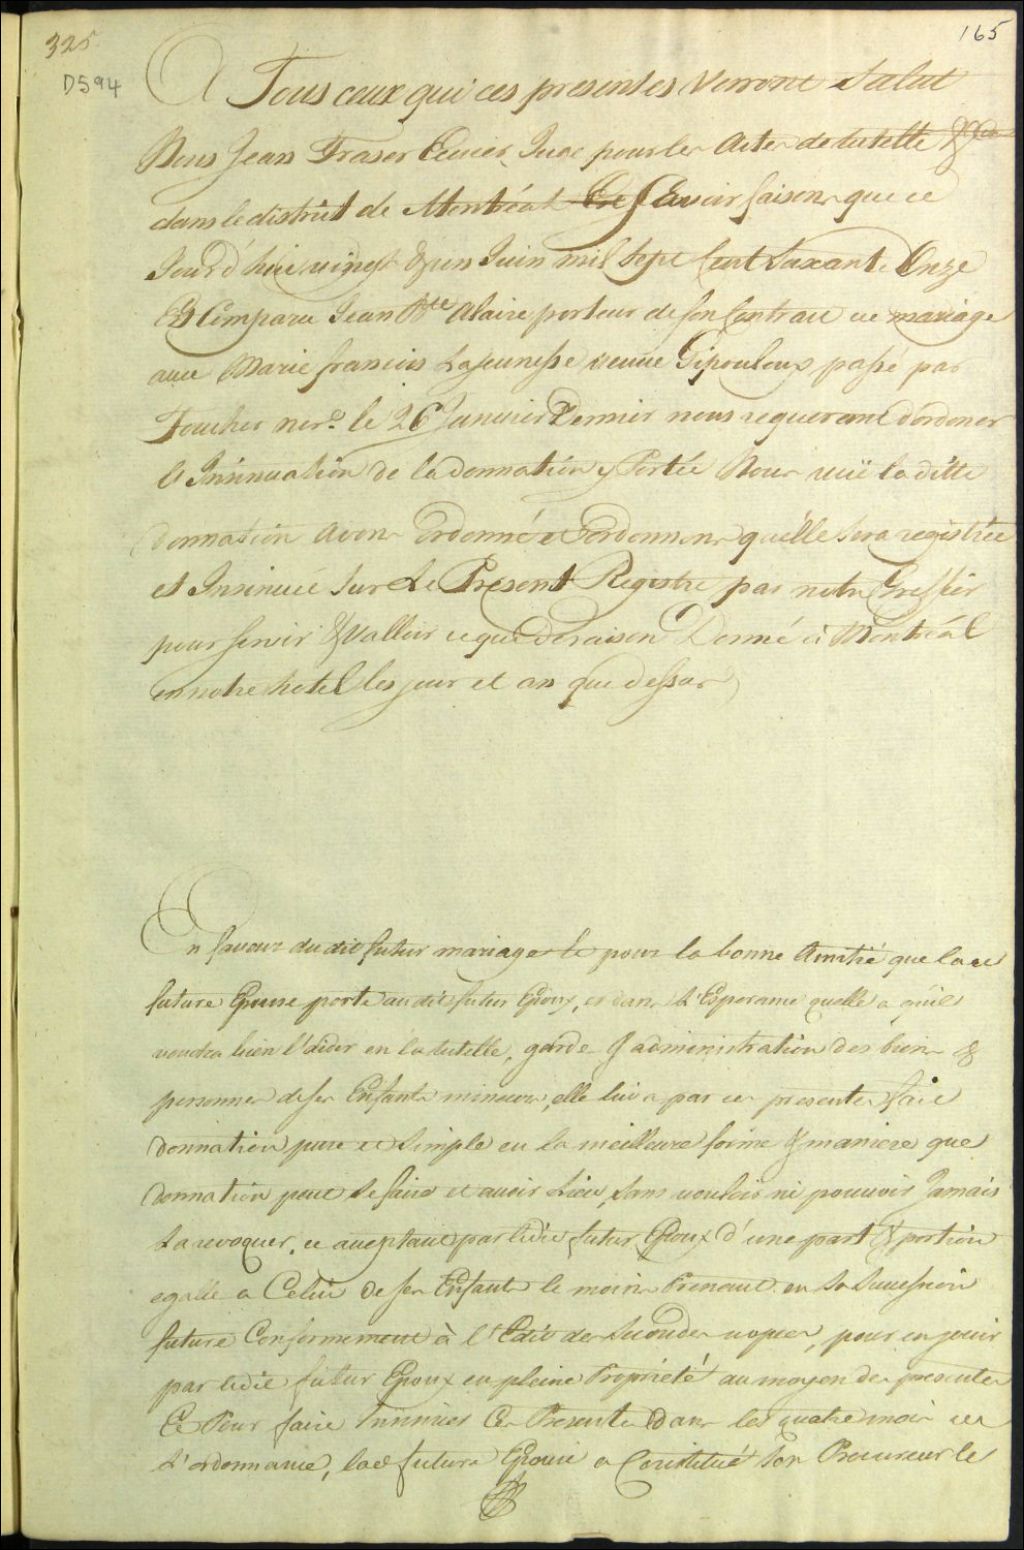 325
165
D594
A Tous ceux qui ces presentes Verront Salut
Nous Jean Fraser Ecuier Juge pour les Actes de tutelle &ca
dans le district de Montréal Scavoir faisons que ce
Jour d'huie vingt & un Juin mil Sept Cent Soixante Onze
Est Comparu Jean Bte Alaire porteur de son Contract de mariage
avec Marie francois Lajeunesse veuve Gipouloux passé par
Foucher nore. le 26 Janvier Dernier nous requerant d'ordoner
l'Insinuation de la donnation y Portée Nous vüe la ditte
donnation avons Ordonné et ordonnons qu'elle sera registrée
et Insinuée Sur Le Présent Registre par notre Greffier
pour servir & valloir ce que de raison Donné à Montréal
en notre hotel les jour et an que dessus
En faveur dudit futur mariage et pour la bonne Amitié que lade
future Epouse porte audit futur Epoux, et dans L'Esperance quelle a qu'il
voudra bien l'aider en la tutelle, garde & administration des biens &
personnes de ses Enfants mineurs, elle lui a par ces presentes fait
donnation pure et Simple en la meilleure forme & maniere que
donnation peut se faire et avoir Lieu, sans vouloir ni pouvoir Jamais
La revoquer, ce acceptant par ledit futur Epoux d'une part & portion
egalle a Celui de ses Enfants le moins Prenant en Sa Succession
future Conformement à l'Edit des Secondes nopces, pour en jouir
par ledit futur Epoux en pleine Propriété au moyen des presentes
Et Pour faire Insinuer Ces Presentes Dans les quatre mois de
L'ordonnance, lade future Epouse a Constitué Son Procureur le